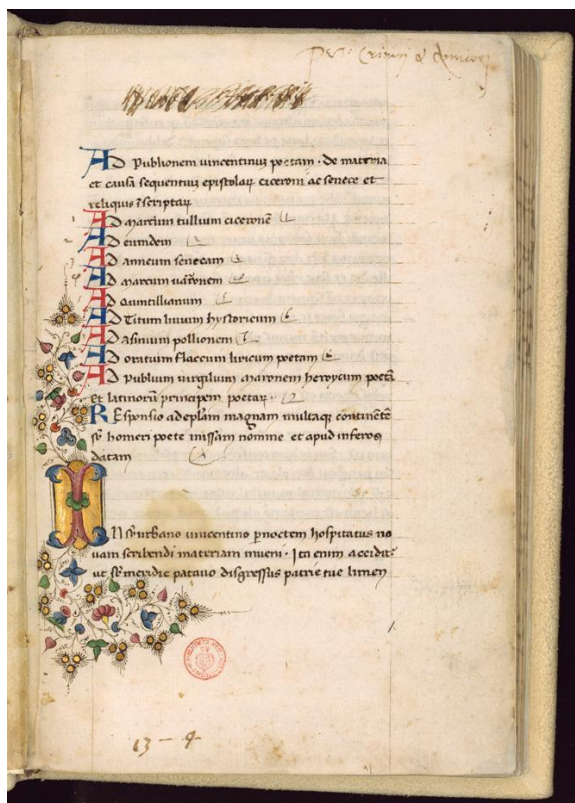 AD Publionem uincentinum poetam · de materia
et causa sequentium epistolarum ciceroni ac senece et
reliquis inscriptarum
AD marcum tullium ciceronē 1
AD eundem 2
AD anneum senecam 3
AD marcum uarronem 4
AD Quintilianum 5
AD Titum liuium hystoricum 6
AD asinium pollionem 7
AD oratium flaccum liricum poetam 8
AD publium uirgilium maronem heroycum poetā
et latinorū principem poetarum · 9
REsponsio ad eplam magnam multaque continentē
sub homeri poete missam nomine et apud inferos
datam
IN suburbano uincentino per noctem hospitatus no
uam scribendi materiam inueni · Ita enim accidit
ut meridie patauo digressus patrie tue limen
13 - 4